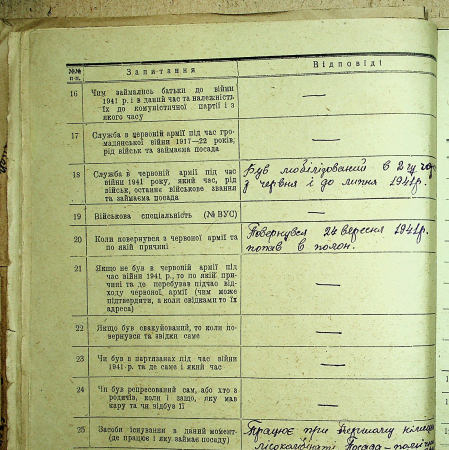 №№ п-п.
Запитання
Відповіді
16
Чим займались батьки до війни
1941 р. і в даний час та належність
їх до комуністичної партії і з
якого часу
—
17
Служба в червоній армії під час гро-
мадянської війни 1917—22 років,
рід військ та займаєма посада
—
18
Служба в червоній армії під час
війни 1941 року, який час, рід
військ, останнє військове звання
та займаєма посада
Був мобілізований в
з червня і до липня 1941 р.
19
Військова спеціальність (№ ВУС)
—
20
Коли повернувся з червоної армії та
по якій причині
Повернувся 24 вересня 1941 р.
попав в полон.
21
Якщо не був в червоній армії під
час війни 1941 р., то по якій при-
чині та де перебував підчас від-
ходу червоної армії (чим може
підтвердити, а коли свідками то їх
адреса)
—
22
Якщо був евакуйований, то коли по-
вернувся та звідки саме
—
23
Чи був в партизанах під час війни
1941 р. та де саме і який час
—
24
Чи був репресований сам, або хто з
родичів, коли і защо, яку мав
кару та чи відбув її
—
25
Засоби існування в даний момент
(де працює і яку займає посаду)
Працює при
Посада -